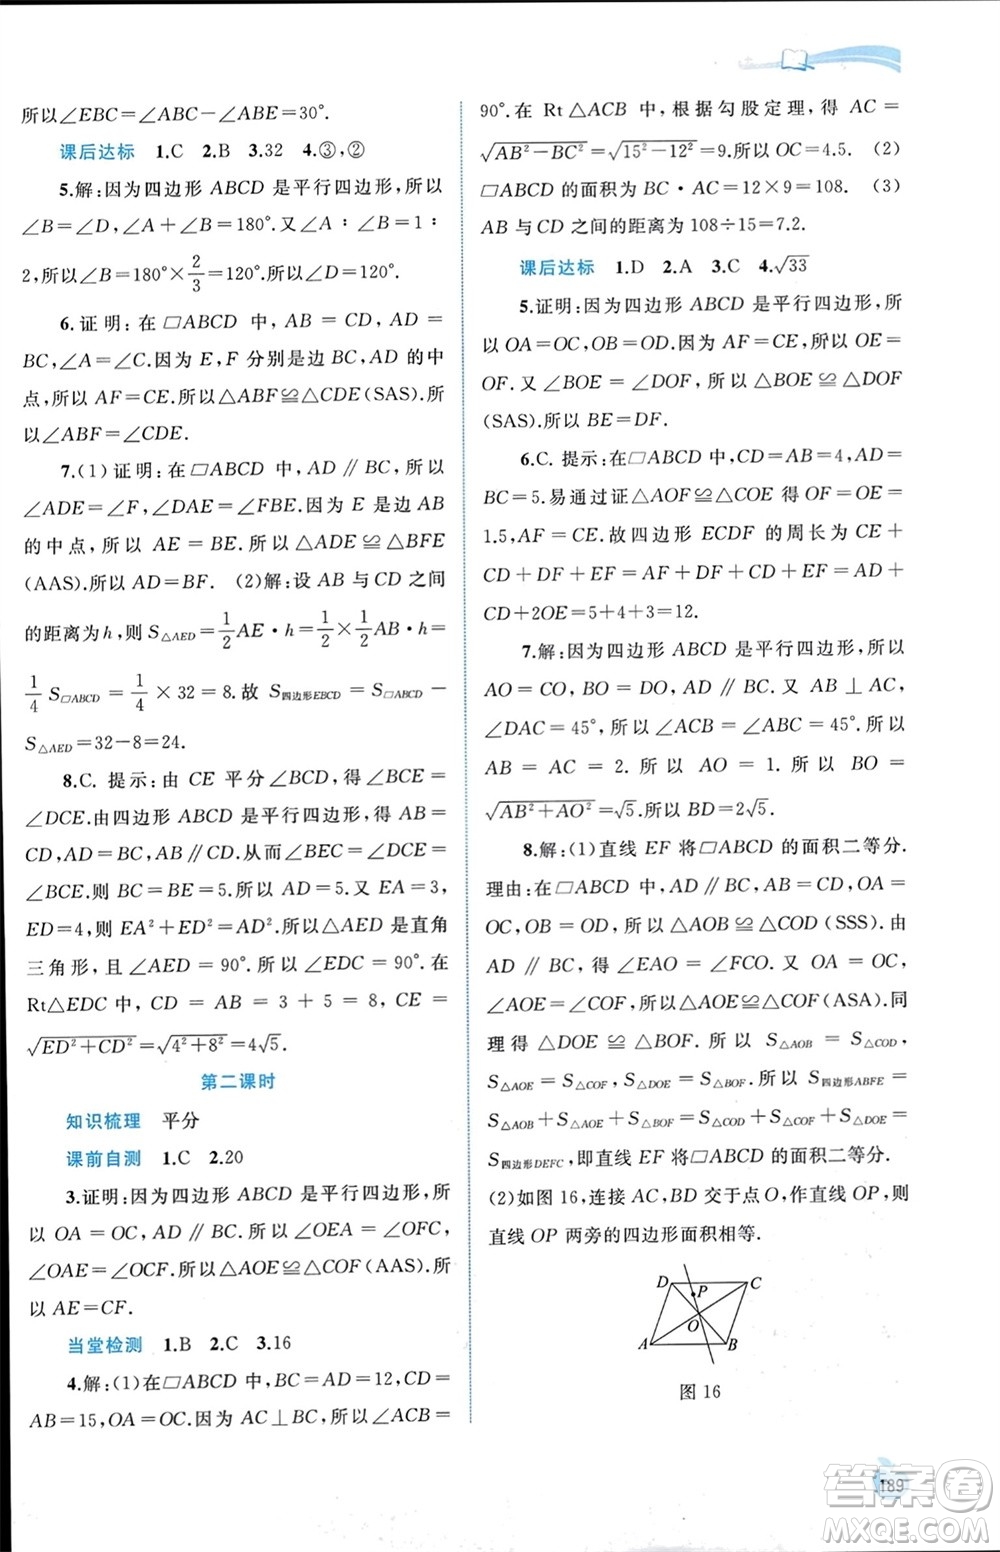 所以∠EBC=∠ABC-∠ABE=30°.
课后达标 1.C 2.B 3.32 4.③,②
5.解:因为四边形 ABCD 是平行四边形,所以
∠B=∠D,∠A+∠B=180°.又∠A∶∠B=1∶
2,所以∠B=180°×2/3=120°.所以∠D=120°.
6.证明:在□ABCD 中,AB=CD,AD=
BC,∠A=∠C.因为 E,F 分别是边 BC,AD 的中
点,所以 AF=CE.所以△ABF≌△CDE(SAS).所
以∠ABF=∠CDE.
7.(1)证明:在□ABCD 中,AD∥BC,所以
∠ADE=∠F,∠DAE=∠FBE.因为 E 是边 AB
的中点,所以 AE=BE.所以△ADE≌△BFE
(AAS).所以 AD=BF. (2)解:设 AB 与 CD 之间
的距离为 h,则 S△AED=1/2AE·h=1/2×1/2AB·h=
1/4S□ABCD=1/4×32=8.故 S四边形EBCD=S□ABCD-
S△AED=32-8=24.
8.C. 提示:由 CE 平分∠BCD,得∠BCE=
∠DCE.由四边形 ABCD 是平行四边形,得 AB=
CD,AD=BC,AB∥CD.从而∠BEC=∠DCE=
∠BCE.则 BC=BE=5.所以 AD=5.又 EA=3,
ED=4,所以 EA²+ED²=AD².所以△AED 是直角
三角形,且∠AED=90°.所以∠EDC=90°.在
Rt△EDC 中,CD=AB=3+5=8,CE=
√(ED²+CD²)=√(4²+8²)=4√5.
第二课时
知识梳理 平分
课前自测 1.C 2.20
3.证明:因为四边形 ABCD 是平行四边形,所
以 OA=OC,AD∥BC.所以∠OEA=∠OFC,
∠OAE=∠OCF.所以△AOE≌△COF(AAS).所
以 AE=CF.
当堂检测 1.B 2.C 3.16
4.解:(1)在□ABCD 中,BC=AD=12,CD=
AB=15,OA=OC.因为 AC⊥BC,所以∠ACB=
90°.在 Rt△ACB 中,根据勾股定理,得 AC=
√(AB²-BC²)=√(15²-12²)=9.所以 OC=4.5. (2)
□ABCD 的面积为 BC·AC=12×9=108. (3)
AB 与 CD 之间的距离为 108÷15=7.2.
课后达标 1.D 2.A 3.C 4.√33
5.证明:因为四边形 ABCD 是平行四边形,所
以 OA=OC,OB=OD.因为 AF=CE,所以 OE=
OF.又∠BOE=∠DOF,所以△BOE≌△DOF
(SAS).所以 BE=DF.
6.C. 提示:在□ABCD 中,CD=AB=4,AD=
BC=5.易通过证△AOF≌△COE 得 OF=OE=
1.5,AF=CE.故四边形 ECDF 的周长为 CE+
CD+DF+EF=AF+CD+DF+EF=AD+
CD+2OE=5+4+3=12.
7.解:因为四边形 ABCD 是平行四边形,所以
AO=CO,BO=DO,AD∥BC.又 AB⊥AC,
∠DAC=45°,所以∠ACB=∠ABC=45°.所以
AB=AC=2.所以 AO=1.所以 BO=
√(AB²+AO²)=√5.所以 BD=2√5.
8.解:(1)直线 EF 将□ABCD 的面积二等分.
理由:在□ABCD 中,AD∥BC,AB=CD,OA=
OC,OB=OD,所以△AOB≌△COD(SSS).由
AD∥BC,得∠EAO=∠FCO.又 OA=OC,
∠AOE=∠COF,所以△AOE≌△COF(ASA).同
理得△DOE≌△BOF.所以 S△AOB=S△COD,
S△AOE=S△COF,S△DOE=S△BOF.所以 S四边形ABFE=
S△AOB+S△AOE+S△BOF=S△COD+S△COF+S△DOE=
S四边形DEFC,即直线 EF 将□ABCD 的面积二等分.
(2)如图 16,连接 AC,BD 交于点 O,作直线 OP,则
直线 OP 两旁的四边形面积相等.
D C
P
O
A B
图 16
189
答案卷
MXQE.COM